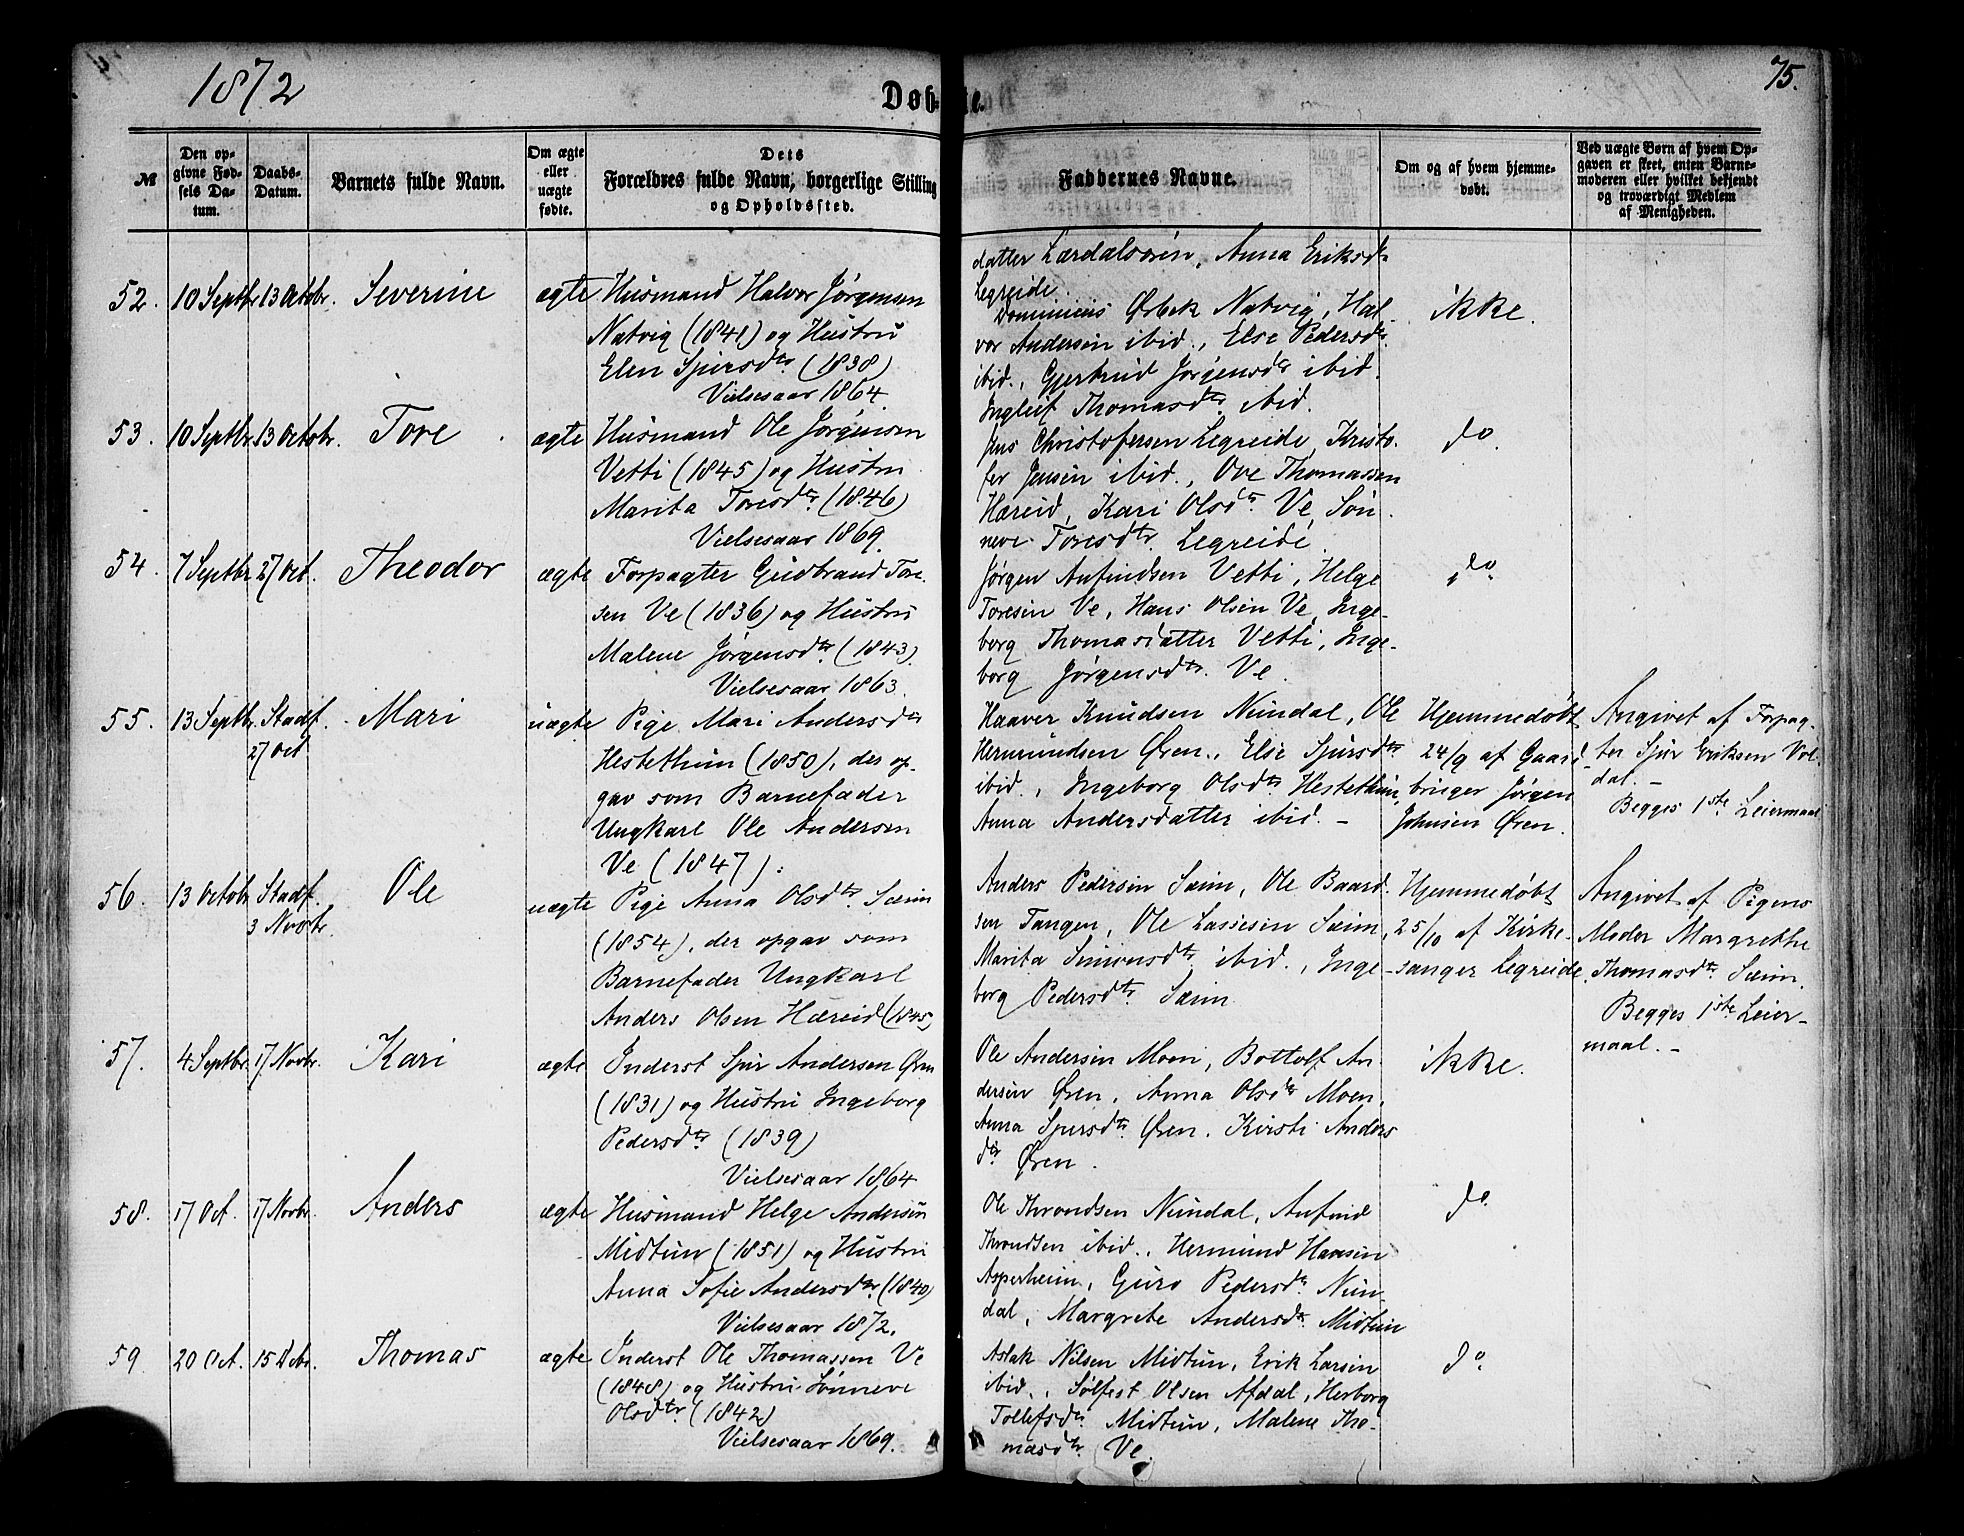 1872
Døb-te.
75.
№
Den op-
givne Fød-
sels Da-
tum.
Daabs-
Datum.
Barnets fulde Navn.
Om ægte
eller
uægte
fødte.
Dets
Forældres fulde Navn, borgerlige Stilling
og Opholdssted.
Faddernes Navne.
Om og af hvem hjemme-
døbt.
Ved uægte Børn af hvem Op-
gaven er skeet, enten Barne-
moderen eller hvilket bekjendt
og troværdigt Medlem
af Menigheden.
datter Lærdalsøren, Anna Eriksdr
Legreide.
52. 10 Septbr 13 Octobr. Severine ægte
Husmand Halvor Jørgensen
Natvig (1841) og Hustru
Elen Sjursdtr (1838)
Vielsesaar 1864.
Dominicus Ørbek Natvig, Hal-
vor Andersen ibid., Else Pedersdtr
ibid., Gjertrud Jørgensdtr ibid.
Ingleif Thomasdtr. ibid.
ikke.
53. 10 Septbr. 13 Octobr. Tore ægte
Husmand Ole Jørgensen
Vetti (1845) og Hustru
Marita Toresdtr. (1846)
Vielsesaar 1869.
Jens Christofersen Legreide, Kristo-
fer Jensen ibid., Ove Thomassen
Hæreid, Kari Olsdtr. Ve, Søn-
neve Toresdtr. Legreide.
do.
54. 7 Septbr 27 Oct. Theodor ægte
Forpagter Gudbrand Tore-
sen Ve (1836) og Hustru
Malene Jørgensdtr. (1843).
Vielsesaar 1863.
Jørgen Anfindsen Vetti, Helge
Toresen Ve, Hans Olsen Ve, Inge-
borg Thomasdatter Vetti, Inge-
borg Jørgensdtr. Ve.
do.
55. 13 Septbr. Stadf. 27 Oct Mari uægte
Pige Mari Andersdtr
Hestethun (1850), der op-
gav som Barnefader
Ungkarl Ole Andersen
Ve (1847).
Haaver Knudsen Nundal, Ole
Hermundsen Øren., Else Sjursdtr
ibid., Ingeborg Olsdtr Hestethun,
Anna Andersdatter ibid. -
Hjemmedøbt
24/9 af Gaard-
bruger Jørgen
Johnsen Øren.
Angivet af Forpag-
ter Sjur Eriksen Vol-
dal. -
Begges 1ste Leiermaal
56. 13 Octobr Stadf. 3 Novbr. Ole uægte
Pige Anna Olsdtr. Sæim
(1854), der opgav som
Barnefader Ungkarl
Anders Olsen Hæreid (1845)
Anders Pedersen Sæim, Ole Baard-
sen Tangen, Ole Lassesen Sæim,
Marita Simonsdtr. ibid., Inge-
borg Pedersdtr. Sæim
Hjemmedøbt
25/10 af Kirke-
sanger Legreide.
Angivet af Pigens
Moder Margrethe
Thomasdtr. Sæim.
Begges 1ste Leier-
maal. -
57. 4 Septbr. 17 Novbr. Kari ægte
Inderst Sjur Andersen Øren
(1831) og Hustru Ingeborg
Pedersdtr (1839)
Vielsesaar 1864
Ole Andersen Moen, Bottolf An-
dersen Øren. Anna Olsdtr Moen.
Anna Sjursdtr. Øren. Kirsti Anders
dtr Øren.
ikke.
58. 17 Oct. 17 Novbr. Anders ægte
Husmand Helge Andersen
Midtun (1851) og Hustru
Anna Sofie Andersdtr. (1840)
Vielsesaar 1872.
Ole Throndsen Nundal, Anfind
Throndsen ibid., Hermund Hansen
Asperheim, Guro Pedersdtr. Nun-
dal, Margrete Andersdtr. Midtun
do.
59 20 Oct. 15 Dcbr. Thomas ægte
Inderst Ole Thomassen Ve
(1848) og Hustru Sønneve
Olsdtr. (1842)
Vielsesaar 1869.
Aslak Nilsen Midtun, Erik Larsen
ibid., Sølfest Olsen Afdal, Herborg
Tollefsdtr. Midtun, Malene Tho-
masdtr. Ve.
do.